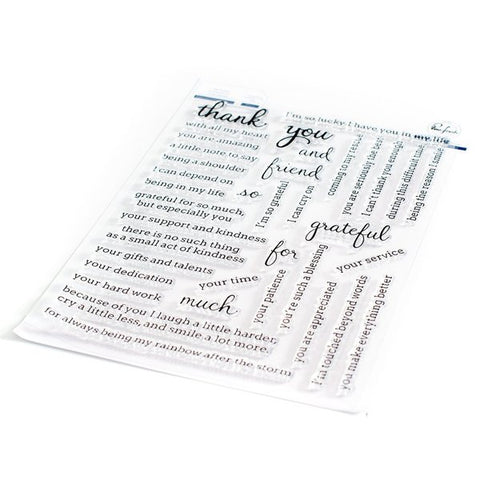 thank
you
and
friend
so
grateful
for
much
I'm so lucky I have you in my life
with all my heart
you are amazing
a little note to say
being a shoulder
I can depend on
being in my life
grateful for so much,
but especially you
your support and kindness
there is no such thing
as a small act of kindness
your gifts and talents
your dedication
your time
your hard work
because of you I laugh a little harder,
cry a little less, and smile a lot more.
for always being my rainbow after the storm
I'm so grateful
I can cry on
coming to my rescue
you are seriously the best
I can't thank you enough
during this difficult time
being the reason I smile
your service
your patience
you're such a blessing
you are appreciated
I'm touched beyond words
you make everything better